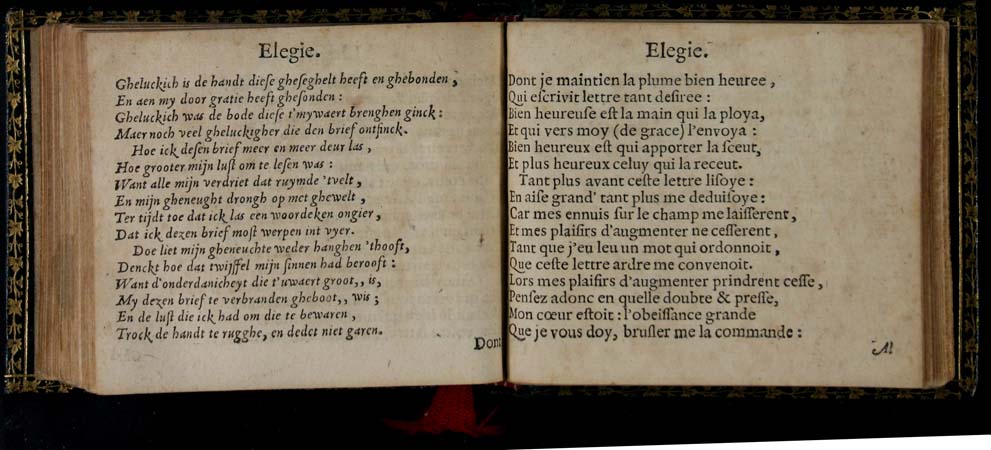 Elegie.
Gheluckich is de handt dieſe gheſeghelt heeft en ghebonden,
En aen my door gratie heeft gheſonden:
Gheluckich was de bode dieſe t'mywaert brenghen ginck:
Maer noch veel gheluckigher die den brief ontfinck.
Hoe ick deſen brief meer en meer deur las,
Hoe grooter mijn luſt om te leſen was:
Want alle mijn verdriet dat ruymde 'tvelt,
En mijn gheneught drongh op met ghewelt,
Ter tijdt toe dat ick las een woordeken ongier,
Dat ick dezen brief moſt werpen int vyer.
Doe liet mijn gheneuchte weder hanghen 'thooft,
Denckt hoe dat twijffel mijn ſinnen had berooft:
Want d'onderdanicheyt die t'uwaert groot,, is,
My dezen brief te verbranden gheboot,, wis;
En de luſt die ick had om die te bewaren,
Trock de handt te rugghe, en dedet niet garen.
Dont
Elegie.
Dont je maintien la plume bien heuree,
Qui eſcrivit lettre tant deſiree:
Bien heureuſe eſt la main qui la ploya,
Et qui vers moy (de grace) l'envoya:
Bien heureux eſt qui apporter la ſceut,
Et plus heureux celuy qui la receut.
Tant plus avant ceſte lettre liſoye:
En aiſe grand' tant plus me deduiſoye:
Car mes ennuis ſur le champ me laiſſerent,
Et mes plaiſirs d'augmenter ne ceſſerent,
Tant que j'eu leu un mot qui ordonnoit,
Que ceſte lettre ardre me convenoit.
Lors mes plaiſirs d'augmenter prindrent ceſſe,
Penſez adonc en quelle doubte & preſſe,
Mon cœur eſtoit: l'obeiſſance grande
Que je vous doy, bruſler me la commande:
M